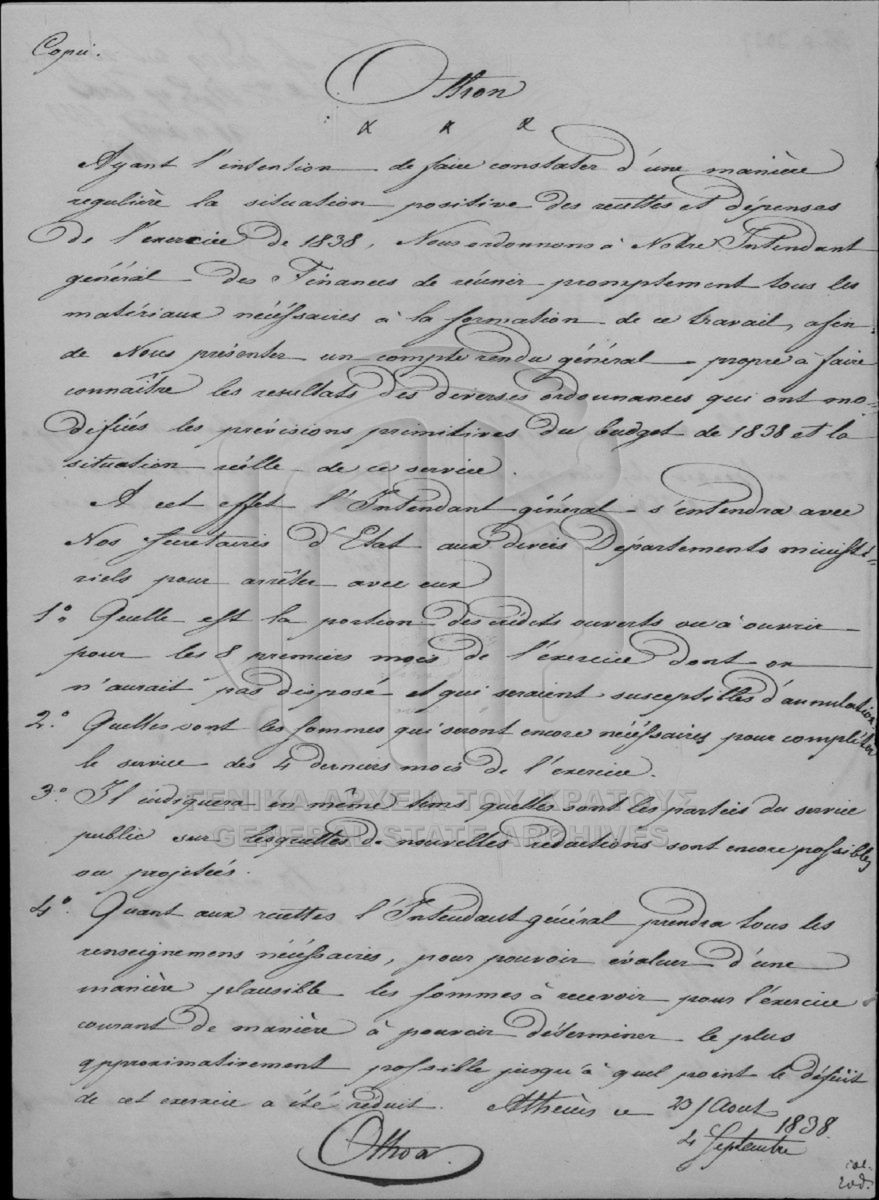 Copie.
Othon
x x x
Ayant l'intention de faire constater d'une manière
regulière la situation positive des recettes et dépenses
de l'exercice de 1838, Nous ordonnons à Notre Intendant
général des Finances de réunir promptement tous les
matériaux nécéssaires à la formation de ce travail, afin
de Nous présenter un compte rendu général propre à faire
connaître les resultats des diverses ordonnances qui ont mo-
difiés les prévisions primitives du budget de 1838 et la
situation réelle de ce service.
A cet effet l'Intendant général s'entendra avec
Nos Secretaires d'Etat aux divers Départements ministé-
riels pour arrêter avec eux
1º. Quelle est la portion des crédits ouverts ou à ouvrir
pour les 8 premiers mois de l'exercice dont on
n'aurait pas disposé et qui seraient susceptibles d'annulation,
2.º Quelles sont les sommes qui seront encore nécéssaires pour compléter
le service des 4 derniers mois de l'exercice.
3.º Il indiquera en même tems quelles sont les parties du service
public sur lesquelles de nouvelles reductions sont encore possibles
ou projetées.
4º. Quant aux recettes l'Intendant général prendra tous les
renseignemens nécéssaires, pour pouvoir évaluer d'une
manière plausible les sommes à recevoir pour l'exercice
courant de manière à pouvoir déterminer le plus
approximativement possible jusqu'à quel point le déficit
de cet exercice a été réduit. Athènes ce 23/Aout 1838.
4 Septembre
Othon.
ΓΕΝΙΚΑ ΑΡΧΕΙΑ ΤΟΥ ΚΡΑΤΟΥΣ
GENERAL STATE ARCHIVES